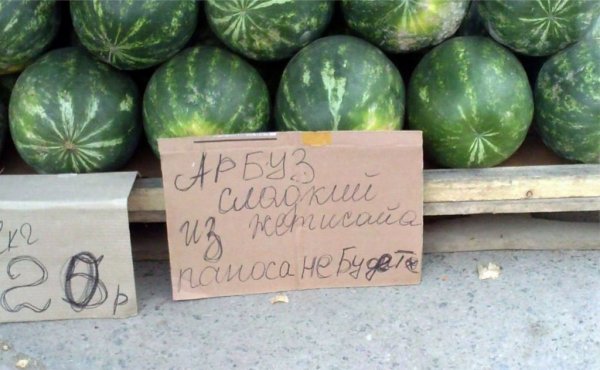 кг
20р
АРБУЗ
сладкий
из жетисайа
паноса не будете